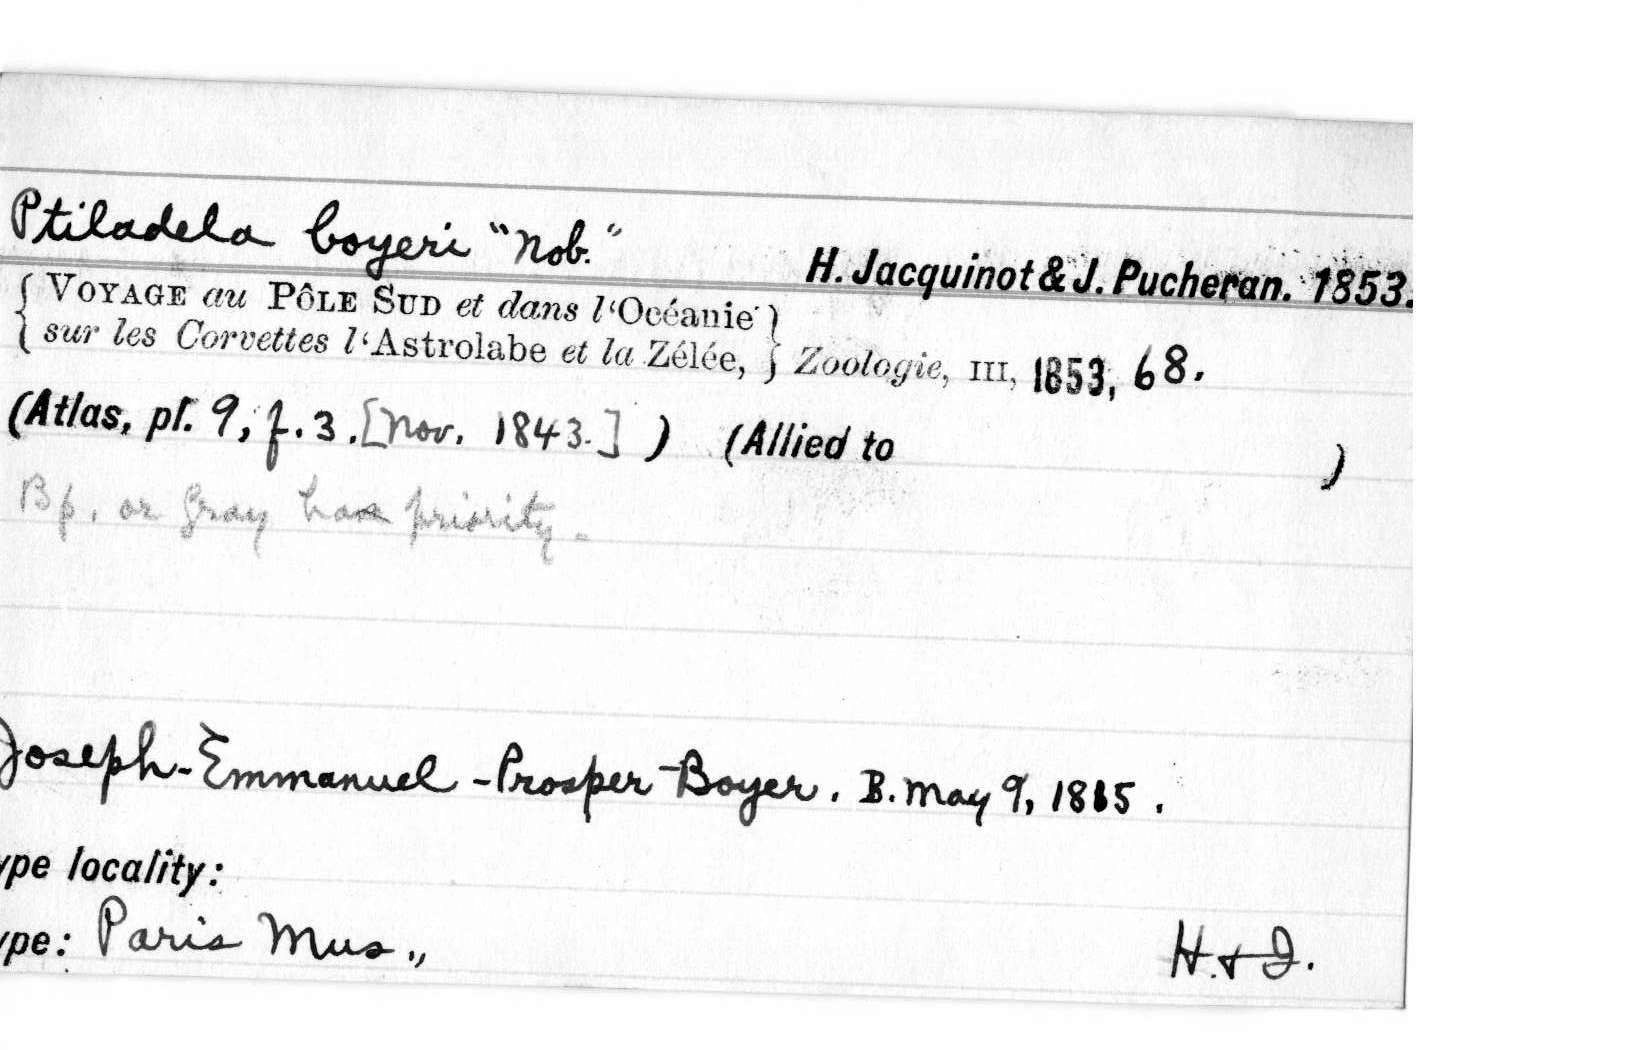 Ptiladela boyeri "Nob."
H. Jacquinot & J. Pucheran. 1853.
{ VOYAGE au PÔLE SUD et dans l'Océanie }
{ sur les Corvettes l'Astrolabe et la Zélée, } Zoologie, III, 1853, 68.
(Atlas, pl. 9, f. 3. [Nov. 1843.] ) (Allied to )
Bp. or Gray has priority.
Joseph-Emmanuel-Prosper-Boyer. B. May 9, 1815.
ype locality:
ype: Paris Mus.,
H. & J.